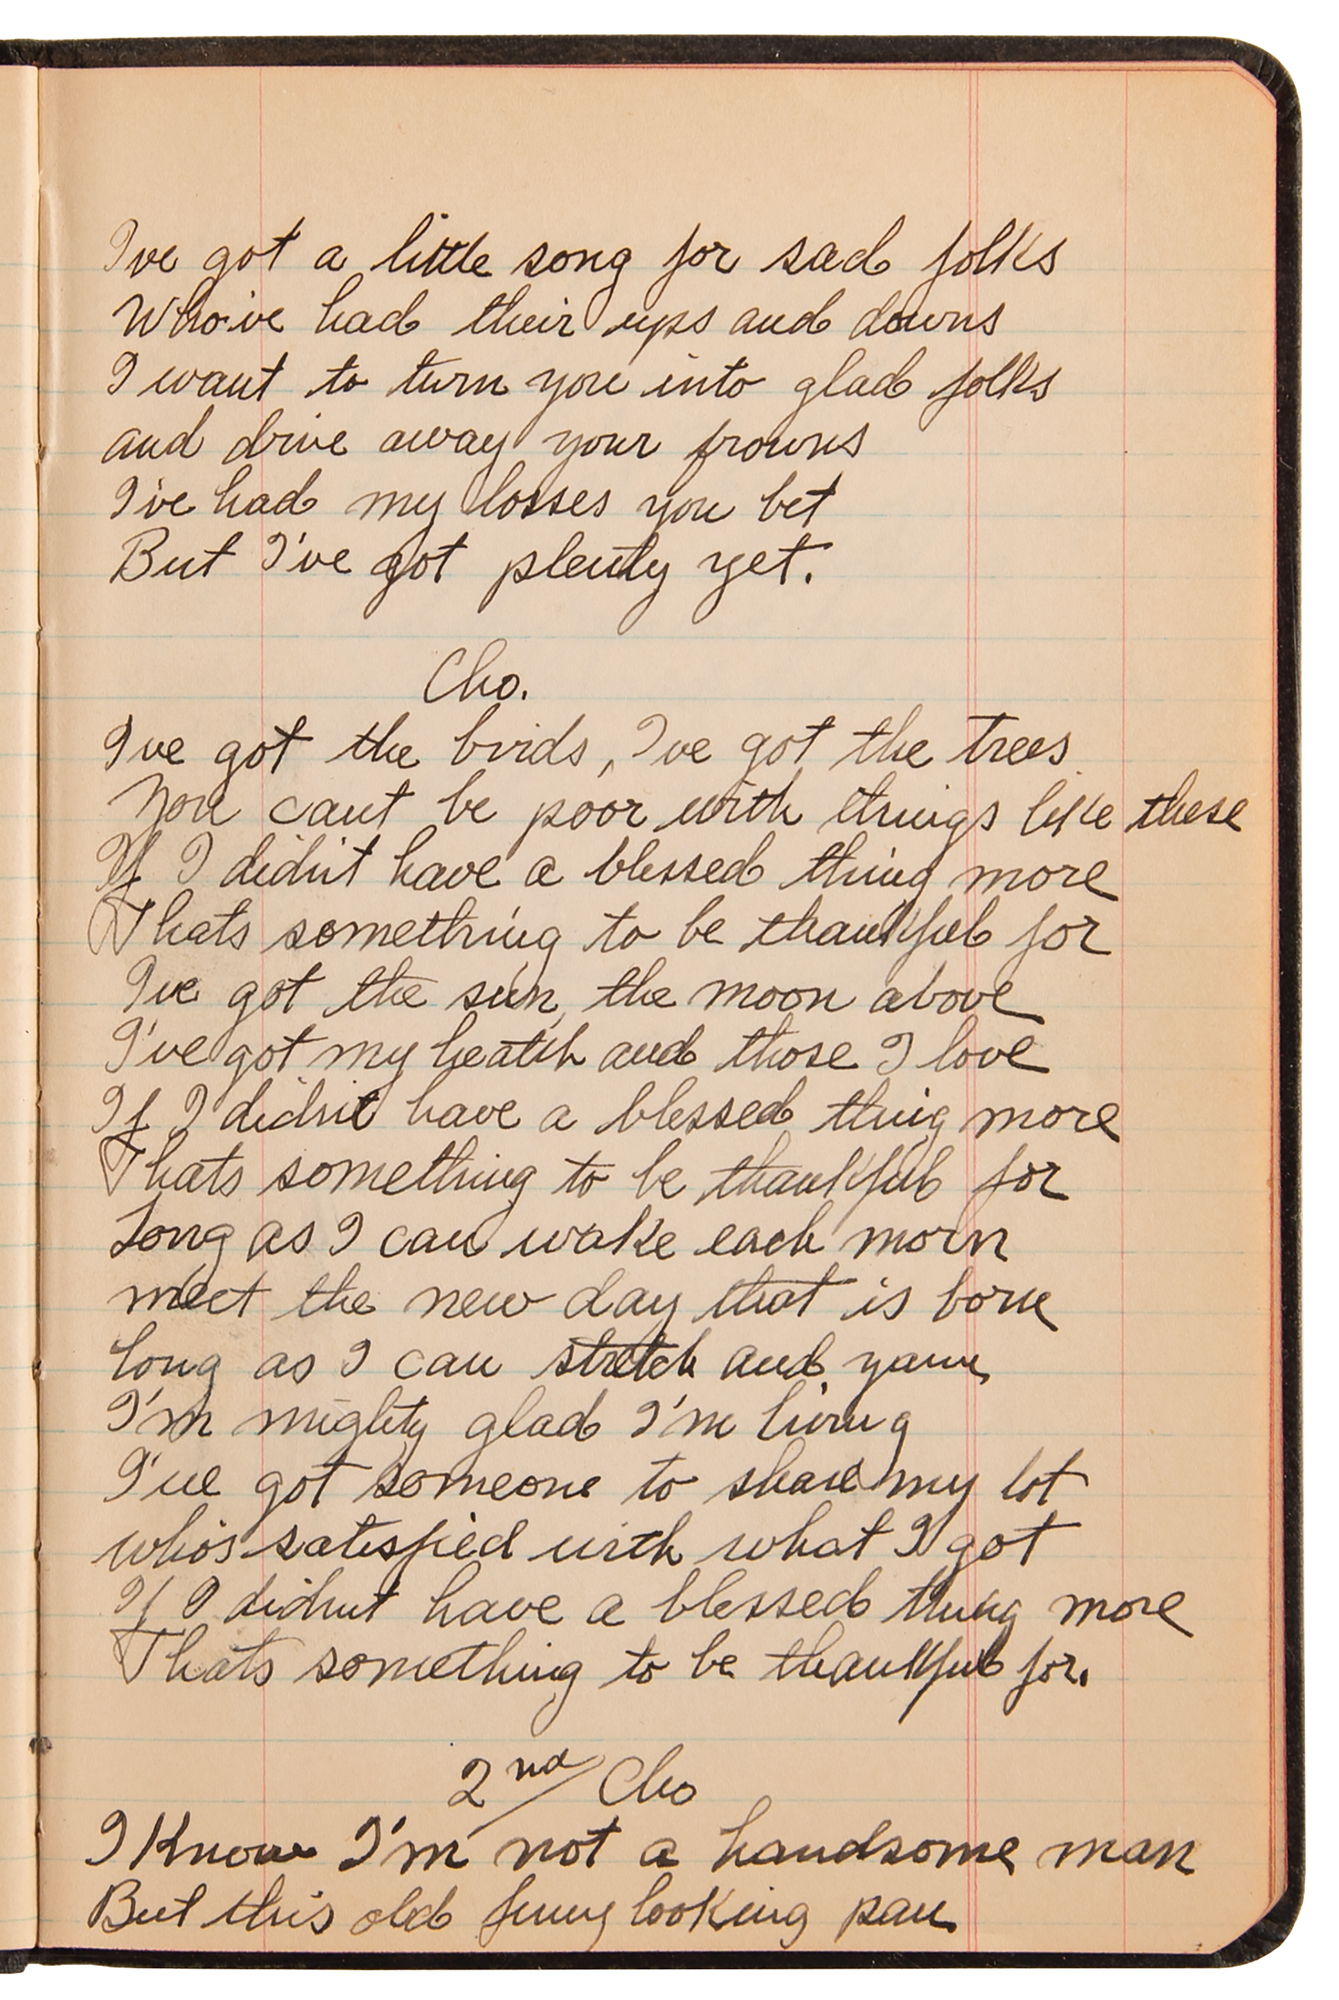 I've got a little song for sad folks
Who've had their ups and downs
I want to turn you into glad folks
and drive away your frowns
I've had my losses you bet
But I've got plenty yet.
Cho.
I've got the birds, I've got the trees
You cant be poor with things like these
If I didn't have a blessed thing more
Thats something to be thankful for
I've got the sun, the moon above
I've got my health and those I love
If I didn't have a blessed thing more
Thats something to be thankful for
Long as I can wake each morn
meet the new day that is born
long as I can stretch and yawn
I'm mighty glad I'm living
I've got someone to share my lot
who's satisfied with what I got
If I didn't have a blessed thing more
Thats something to be thankful for.
2nd Cho
I Know I'm not a handsome man
But this old funny looking pan